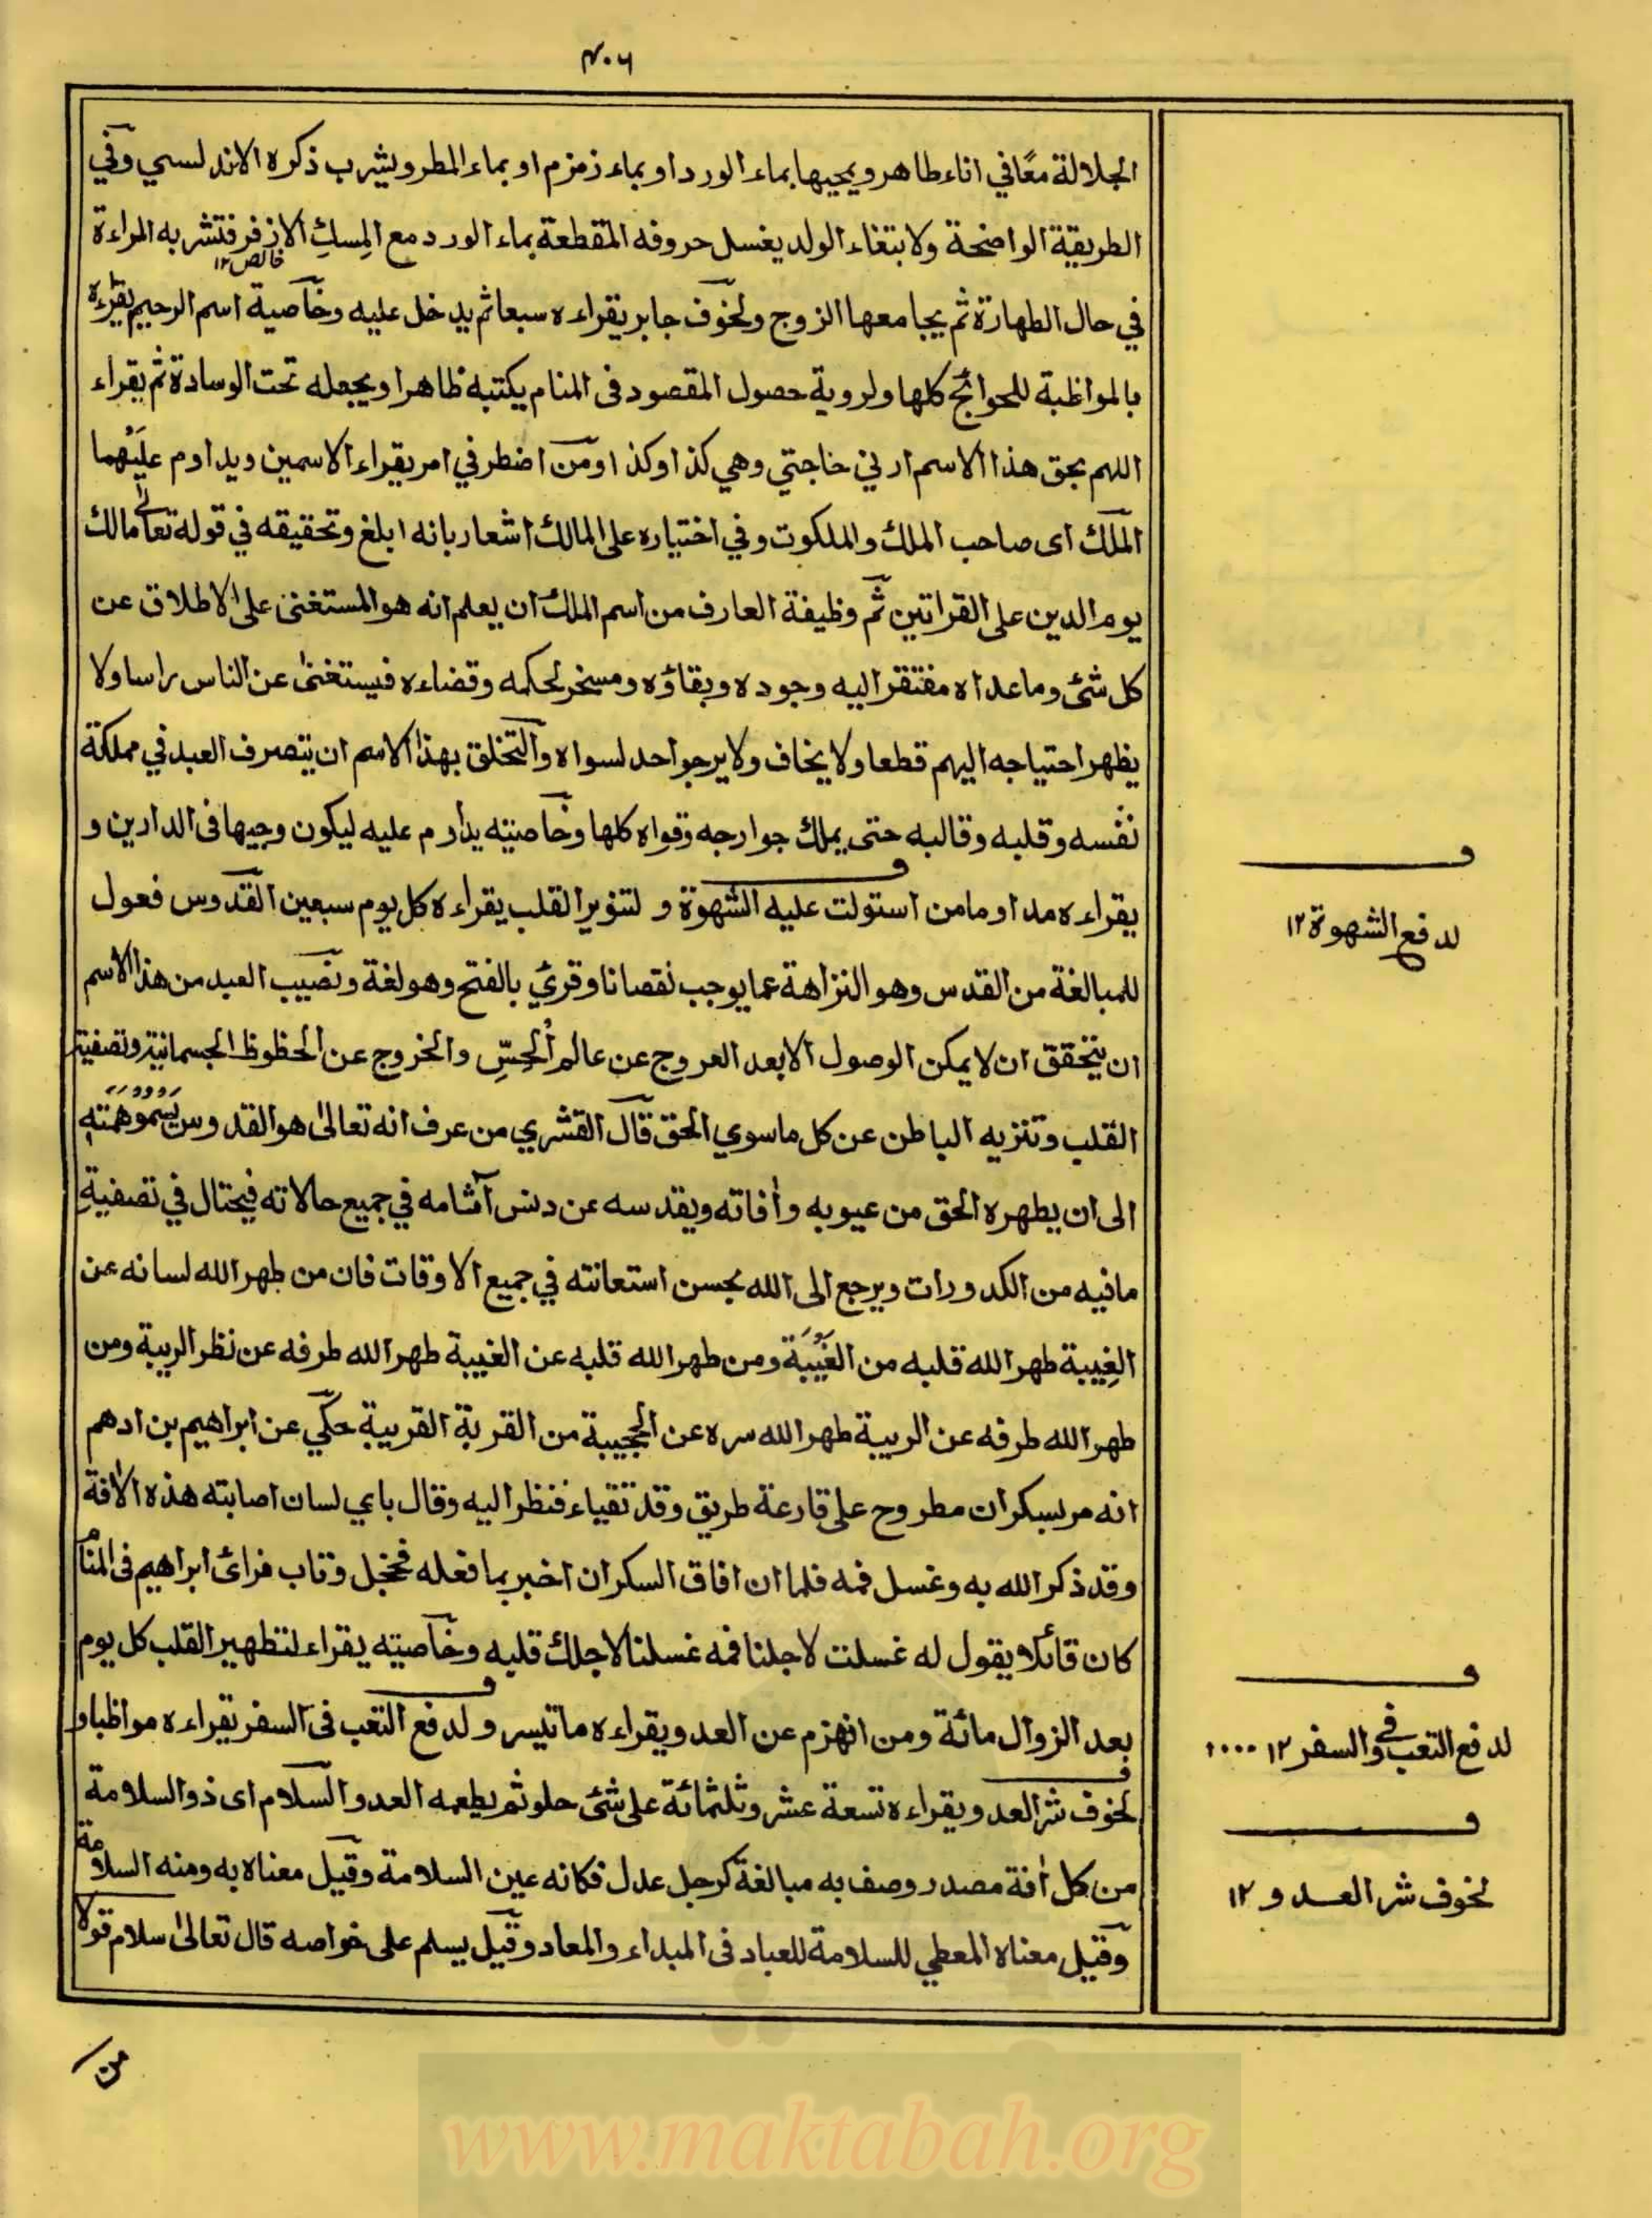 ٢٠٦
الجلالة معًا في اناء طاهر ويمحيها بماء الورد او بماء زمزم او بماء المطر ويشرب ذكره الاندلسي وفي
الطريقة الواضحة ولابتغاء الولد يغسل حروفه المقطعة بماء الورد مع المِسكِ الاذفر فتشربه المراءة
خالص ١٢
في حال الطهارة ثم يجامعها الزوج ولخوف جابر يقراءه سبعا ثم يدخل عليه وخاصية اسم الرحيم يقراءه
بالمواظبة للحوائج كلها ولروية حصول المقصود فى المنام يكتبه ظاهرا ويجعله تحت الوسادة ثم يقراء
اللهم بحق هذا الاسم ارني حاجتي وهي كذا وكذا ومن اضطر في امر يقراء الاسمين ويداوم عليهما
الملك اى صاحب الملك والملكوت وفي اختياره على المالك اشعار بانه ابلغ وتحقيقه في قوله تعالى مالك
يوم الدين على القراتين ثم وظيفة العارف من اسم الملك ان يعلم انه هو المستغنى على الاطلاق عن
كل شئ وما عداه مفتقر اليه وجوده وبقاؤه ومسخر لحكمه وقضاءه فيستغنى عن الناس راسا ولا
يظهر احتياجه اليهم قطعا ولا يخاف ولا يرجوا احد لسواه والتخلق بهذا الاسم ان يتصرف العبد في مملكة
نفسه وقلبه وقالبه حتى يملك جوارحه وقواه كلها وخاصيته يداوم عليه ليكون وجيها فى الدارين و
يقراءه مداوما من استولت عليه الشهوة و لتنوير القلب يقراءه كل يوم سبعين القدوس فعول
للمبالغة من القدس وهو النزاهة عما يوجب نقصانا وقرئ بالفتح وهو لغة ونصيب العبد من هذا الاسم
ان يتحقق ان لا يمكن الوصول الا بعد العروج عن عالم الحِسِّ والخروج عن الحظوظ الجسمانية وتصفية
القلب وتنزيه الباطن عن كل ما سوي الحق قال القشري من عرف انه تعالى هو القدوس يسمو همته
الى ان يطهره الحق من عيوبه وأفاته ويقدسه عن دنس آثامه في جميع حالاته فيحتال في تصفية
ما فيه من الكدورات ويرجع الى الله بحسن استعانته في جميع الاوقات فان من طهر الله لسانه عن
الغِيبة طهر الله قلبه من الغَيْبَة ومن طهر الله قلبه عن الغيبة طهر الله طرفه عن نظر الريبة ومن
طهر الله طرفه عن الريبة طهر الله سره عن الحجيبة من القربة القريبة حكي عن ابراهيم بن ادهم
انه مر بسكران مطروح على قارعة طريق وقد تقياء فنظر اليه وقال باي لسان اصابته هذه الافة
وقد ذكر الله به وغسل فمه فلما ان افاق السكران اخبر بما فعله فخجل وتاب فرائ ابراهيم فى المنام
كان قائلا يقول له غسلت لاجلنا فمه غسلنا لاجلك قلبه وخاصيته يقراء لتطهير القلب كل يوم
بعد الزوال مائة ومن انهزم عن العدو يقراءه ما تيسر ولدفع التعب فى السفر يقراءه مواظبا و
لخوف شر العدو يقراءه تسعة عشر وثلثمائة على شئ حلو ثم يطعمه العدو السلام اى ذو السلامة
من كل أفة مصدر وصف به مبالغة كرجل عدل فكانه عين السلامة وقيل معناه به ومنه السلامة
وقيل معناه المعطي للسلامة للعباد فى المبداء والمعاد وقيل يسلم على خواصه قال تعالى سلام قولا
من
لدفع الشهوة ١٢
لدفع التعب في السفر ١٢
لخوف شر العدو ١٢
www.maktabah.org